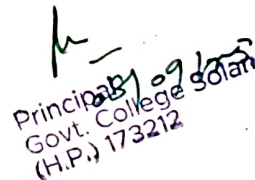 Principal
Govt. College Solan
(H.P.) 173212